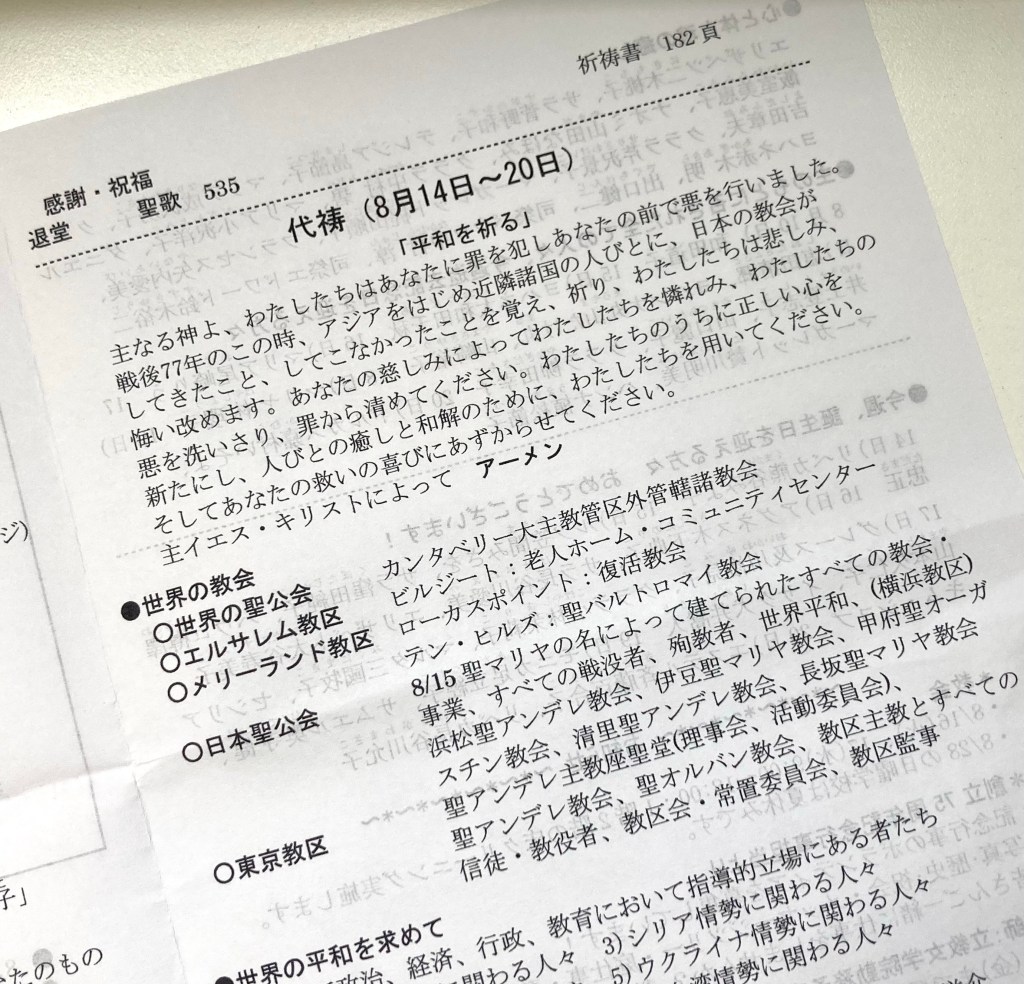 祈祷書 182 頁
感謝・祝福
聖歌 535
退堂
代祷（8月14日～20日）
「平和を祈る」
主なる神よ、わたしたちはあなたに罪を犯しあなたの前で悪を行いました。
戦後77年のこの時、アジアをはじめ近隣諸国の人びとに、日本の教会が
してきたこと、してこなかったことを覚え、祈り、わたしたちは悲しみ、
悔い改めます。あなたの慈しみによってわたしたちを憐れみ、わたしたちの
悪を洗いさり、罪から清めてください。わたしたちのうちに正しい心を
新たにし、人びとの癒しと和解のために、わたしたちを用いてください。
そしてあなたの救いの喜びにあずからせてください。
主イエス・キリストによって アーメン
●世界の教会
○世界の聖公会 カンタベリー大主教管区外管轄諸教会
○エルサレム教区 ビルジート：老人ホーム・コミュニティセンター
○メリーランド教区 ローカスポイント：復活教会
テン・ヒルズ：聖バルトロマイ教会
○日本聖公会 8/15 聖マリヤの名によって建てられたすべての教会・
事業、すべての戦没者、殉教者、世界平和、(横浜教区)
浜松聖アンデレ教会、伊豆聖マリヤ教会、甲府聖オーガ
スチン教会、清里聖アンデレ教会、長坂聖マリヤ教会
○東京教区 聖アンデレ主教座聖堂(理事会、活動委員会)、
聖アンデレ教会、聖オルバン教会、教区主教とすべての
信徒・教役者、教区会・常置委員会、教区監事
●世界の平和を求めて
政治、経済、行政、教育において指導的立場にある者たち
に関わる人々 3)シリア情勢に関わる人々
5)ウクライナ情勢に関わる人々
湾情勢に関わる人々
ジ)
子」
たのもの